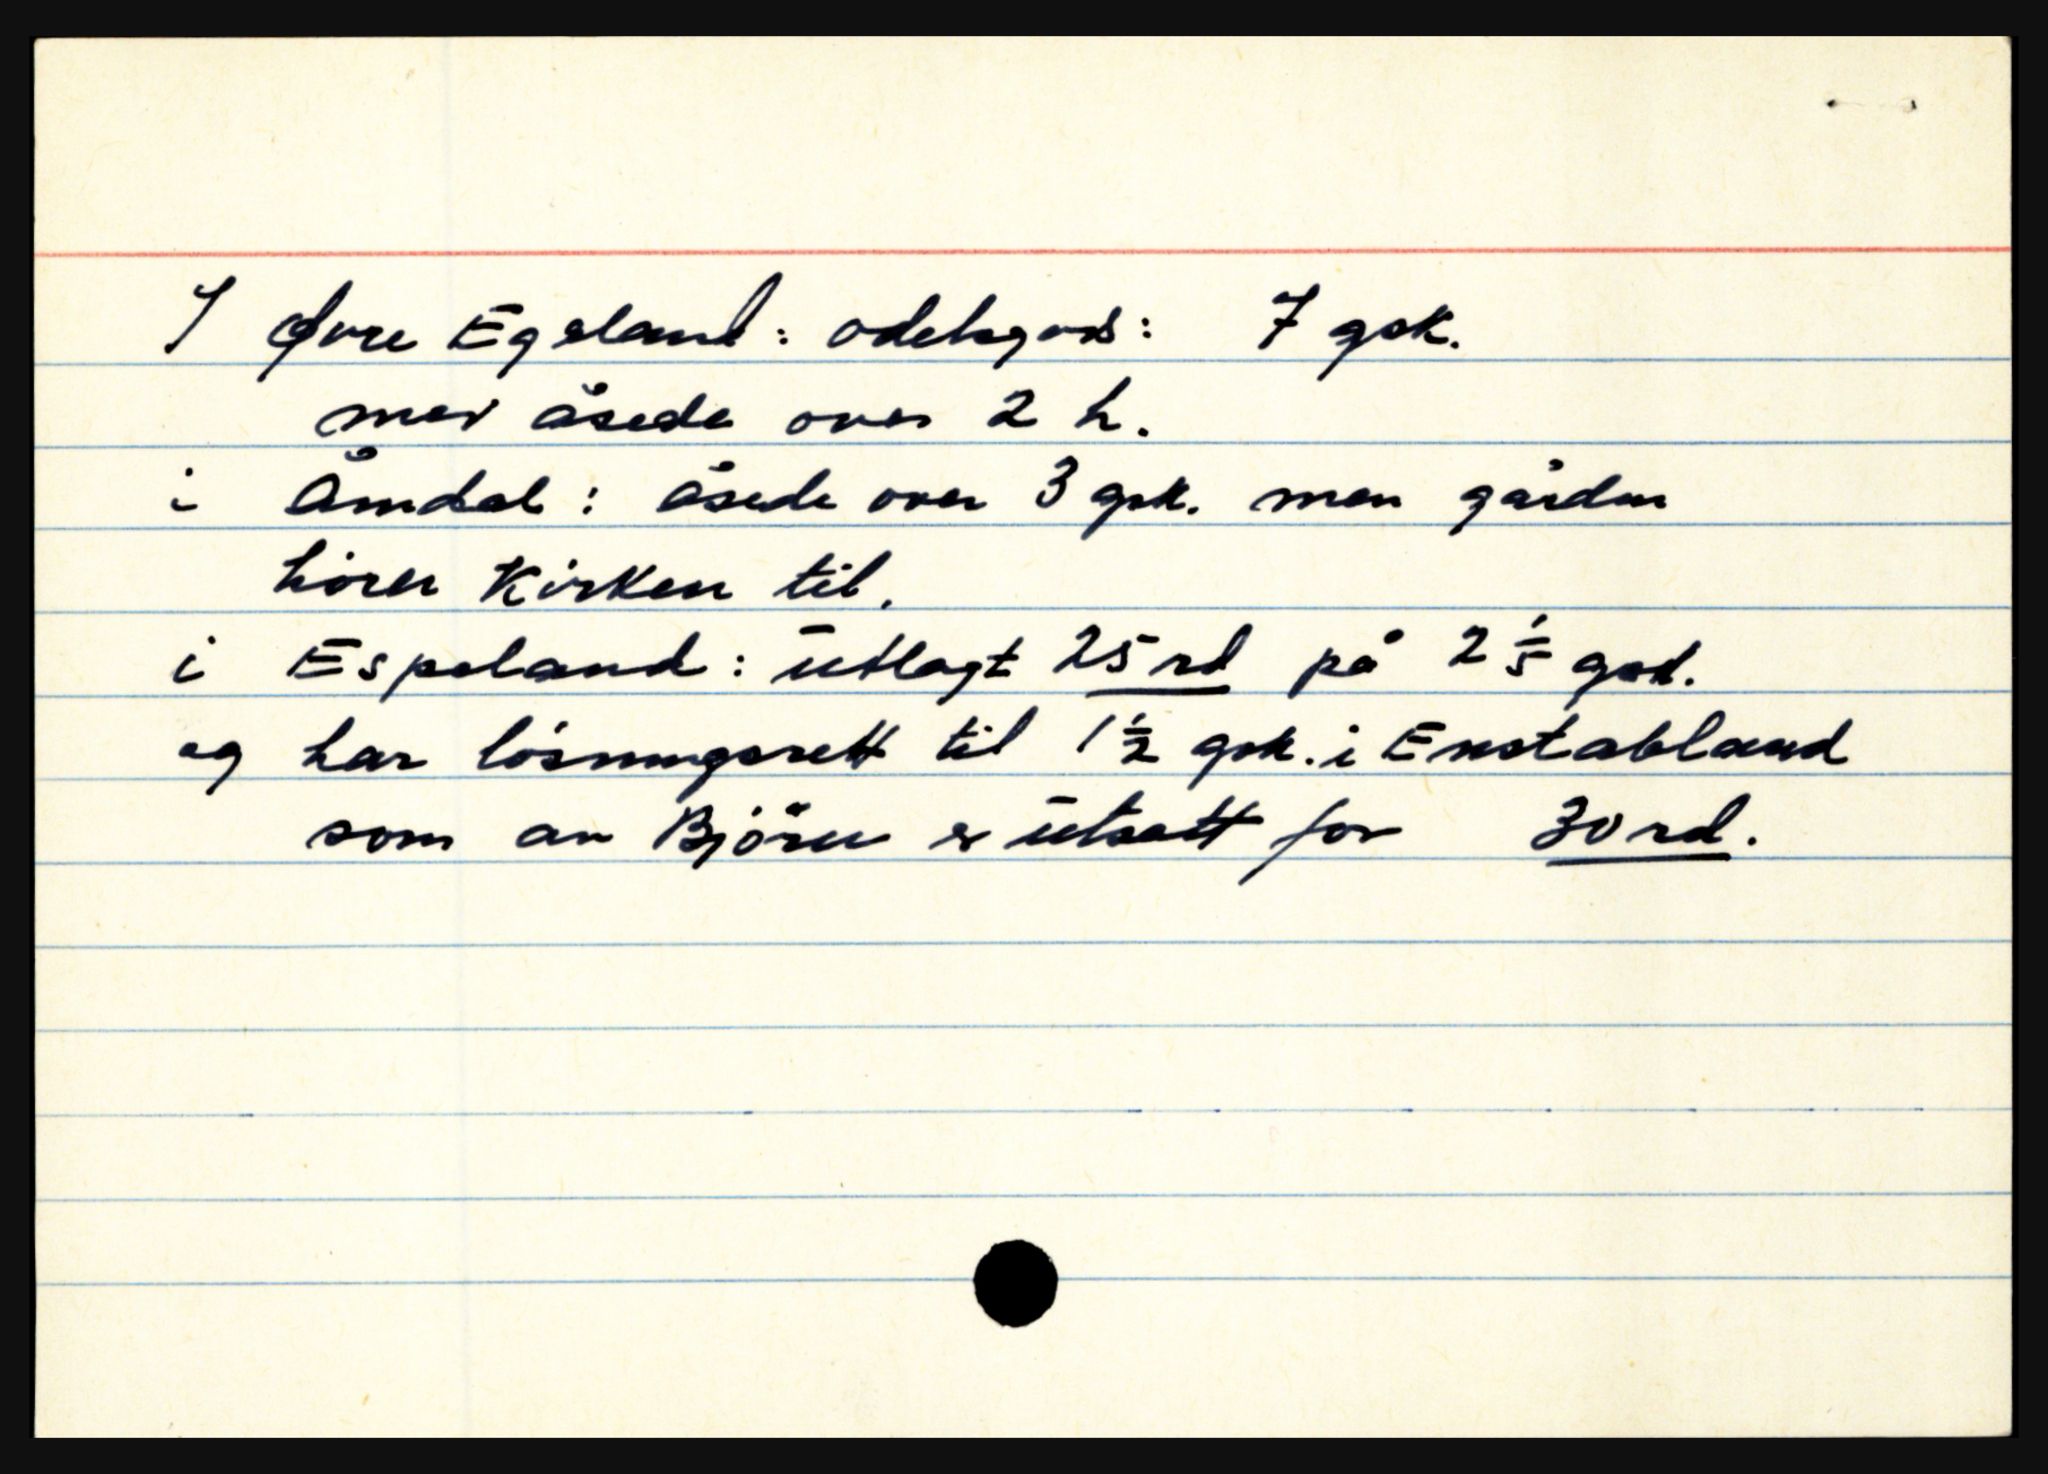 I Øvre Egeland: odelsgods: 7 gsk.
med åsede over 2 h.
i Åmdal: åsede over 3 gsk. men gården
hører Kirken til.
i Espeland: utlagt 25 rd på 2 1/5 gsk.
og har løsningsrett til 1 1/2 gsk. i Enstabland
som av Bjørn er utsatt for 30 rd.